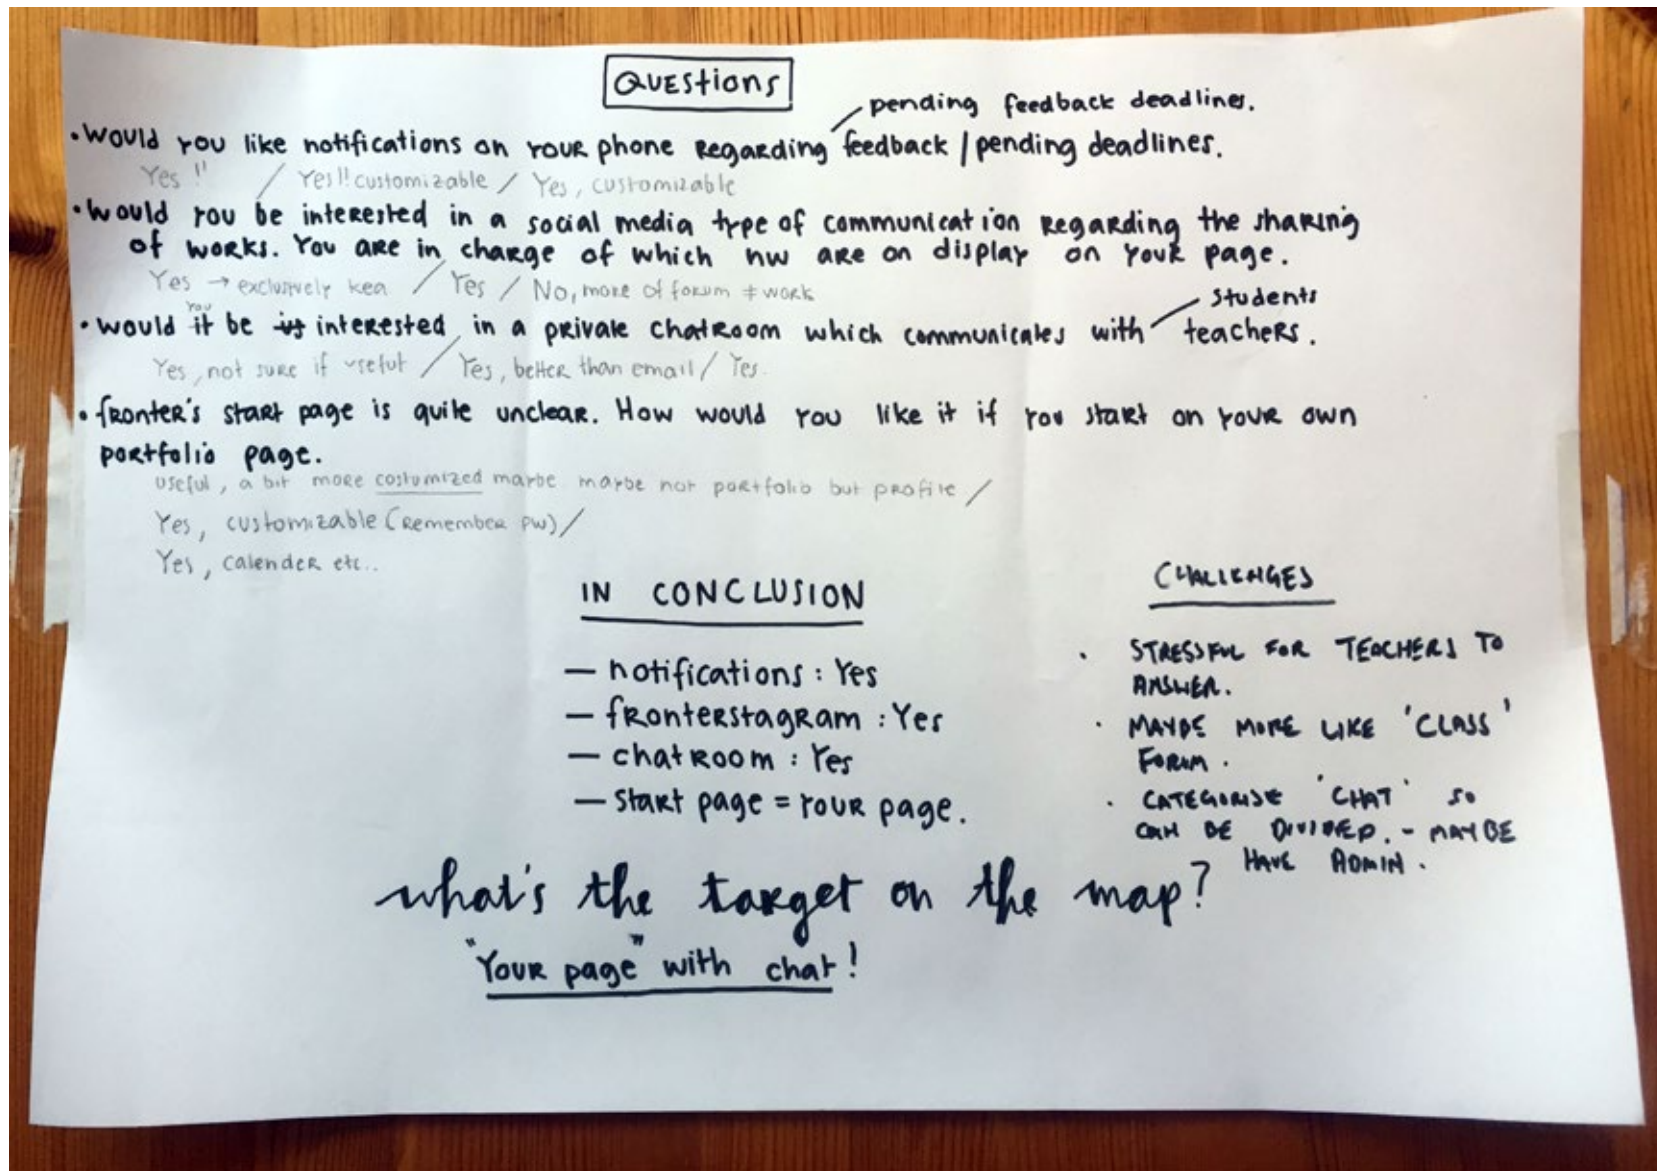 Questions
pending feedback deadlines.
• Would you like notifications on your phone regarding feedback / pending deadlines.
Yes !! / Yes!! customizable / Yes, customizable
• Would you be interested in a social media type of communication regarding the sharing
of works. You are in charge of which nw are on display on your page.
Yes → exclusively kea / Yes / No, more of forum ≠ work
you
students
• would it be interested in a private chatroom which communicates with teachers.
Yes, not sure if useful / Yes, better than email / Yes.
• fronter's start page is quite unclear. How would you like it if you start on your own
portfolio page.
useful, a bit more costumized maybe maybe not portfolio but profile /
Yes, customizable (Remember pw) /
Yes, calender etc..
IN CONCLUSION
— notifications : Yes
— fronterstagram : Yes
— chatroom : Yes
— start page = your page.
CHALLENGES
• STRESSFUL FOR TEACHERS TO
ANSWER.
• MAYBE MORE LIKE 'CLASS'
FORUM.
• CATEGORISE 'CHAT' SO
CAN BE DIVIDED. - MAYBE
HAVE ADMIN.
what's the target on the map?
"Your page" with chat!